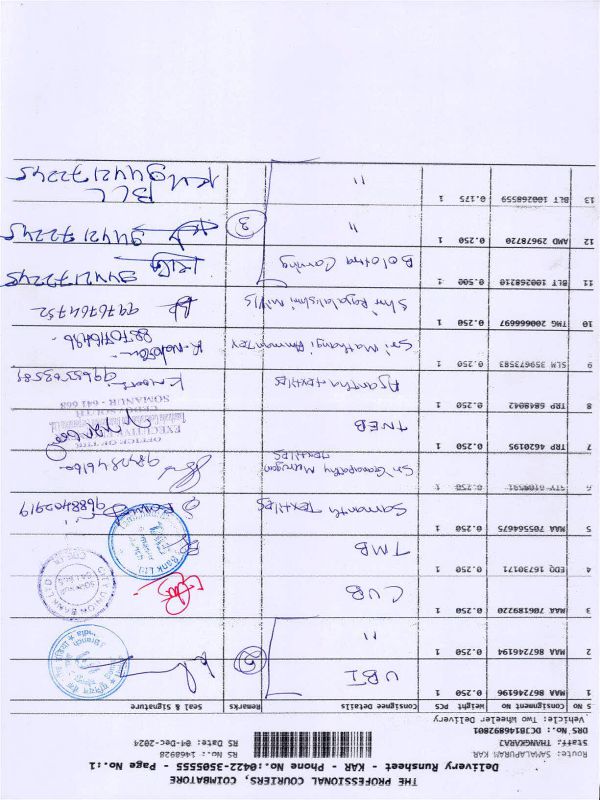 THE PROFESSIONAL COURIERS, COIMBATORE
Delivery Runsheet - KAR - Phone No.:0422-3505555 - Page No.:1
Route: SAMALAPURAM KAR
RS No.: 1468928
Staff: THANGKARAJ
RS Date: 04-Dec-2024
DRS No.: DCB146892801
Vehicle: Two Wheeler Delivery
S No Consignment No Weight PCS Consignee Details Remarks Seal & Signature
1 MAA 867246196 0.250 1 UBI
2 MAA 867246194 0.250 1 "
3 MAA 708189220 0.250 1 CUB
4 EDQ 16730171 0.250 1 TMB
5 MAA 705564675 0.250 1 Samantha Textiles 9688402919
6 0.250 1 Sri Ganapathy Murugan Textiles
7 TRP 4620195 0.250 1 TNEB
OFFICE OF THE
EXECUTIVE
SOMANUR - 641 668
8 TRP 6848042 0.250 1 Ajantha Textiles
9 SLM 359673583 0.250 1 Sri Mathangi Ammantex
10 TMG 200696697 0.250 1 Shri Rajalakshmi Mills 9976764752
11 BLT 100268210 0.500 1 9442172245
12 AMD 29678720 0.250 1 " 3 9442172245
13 BLT 100268559 0.175 1 " BLC 9442172245